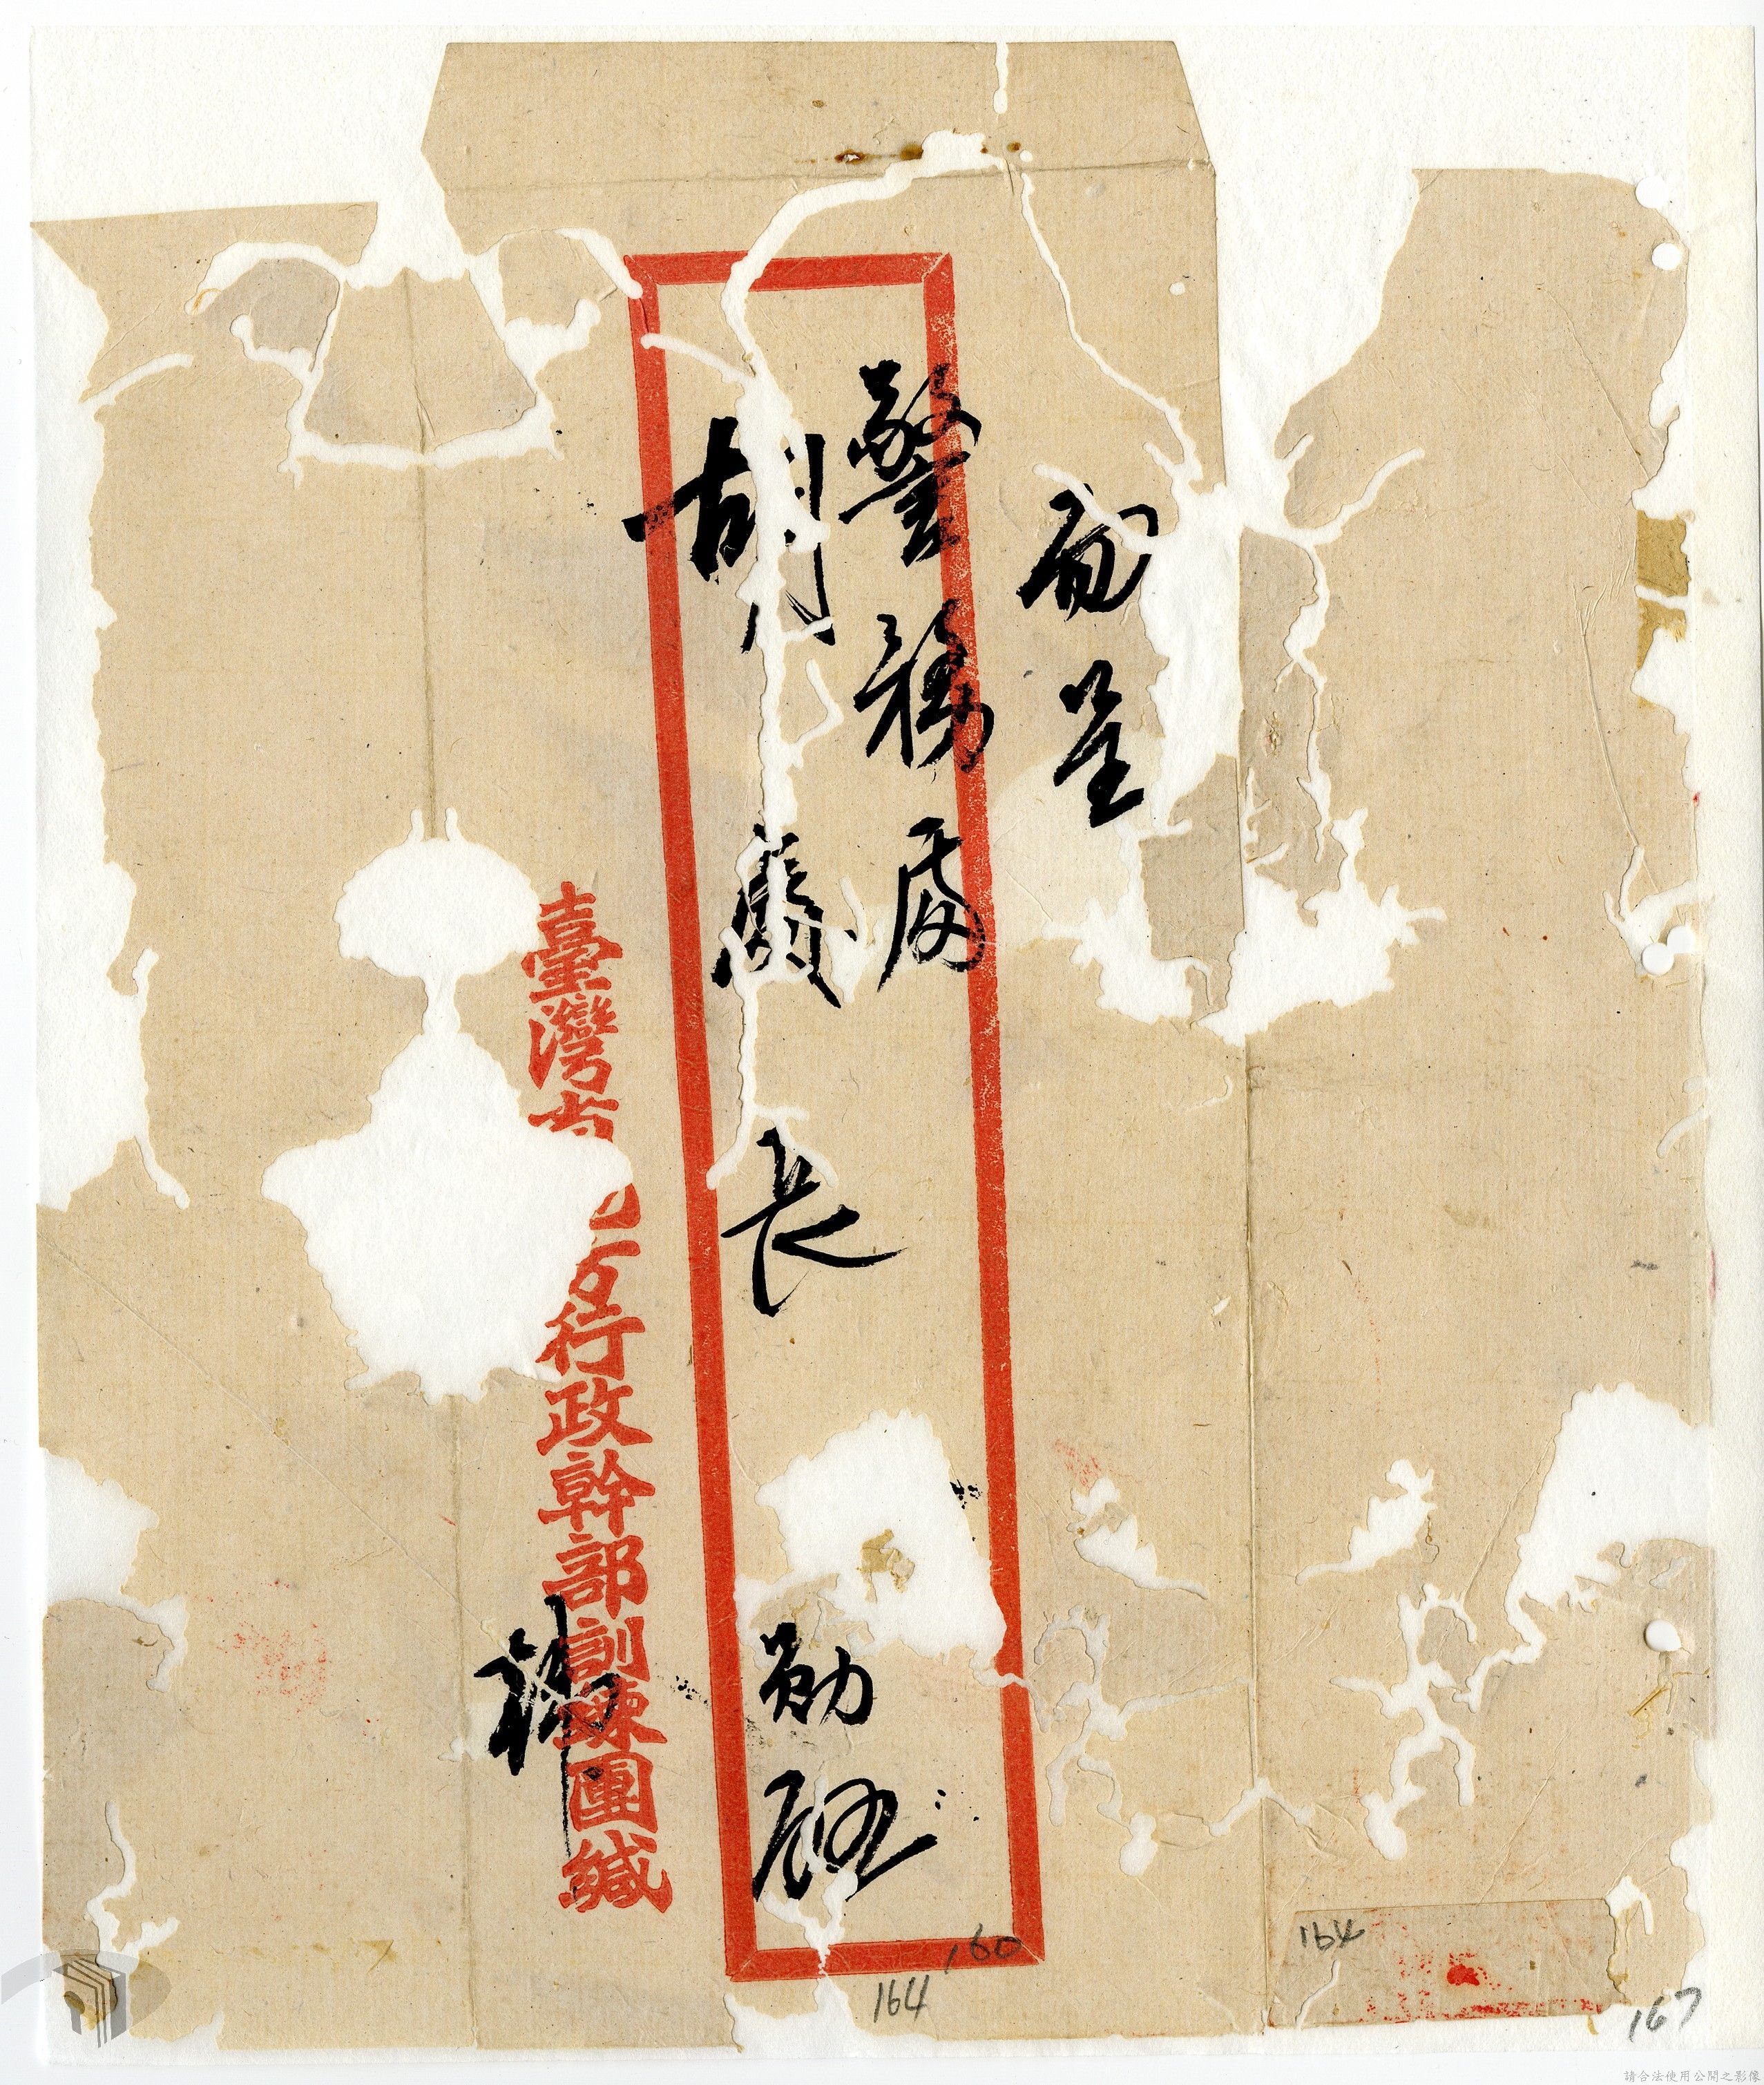 面呈
警務處
胡處長 勛啟
臺灣省地方行政幹部訓練團緘
160
164
164
167
請合法使用公開之影像